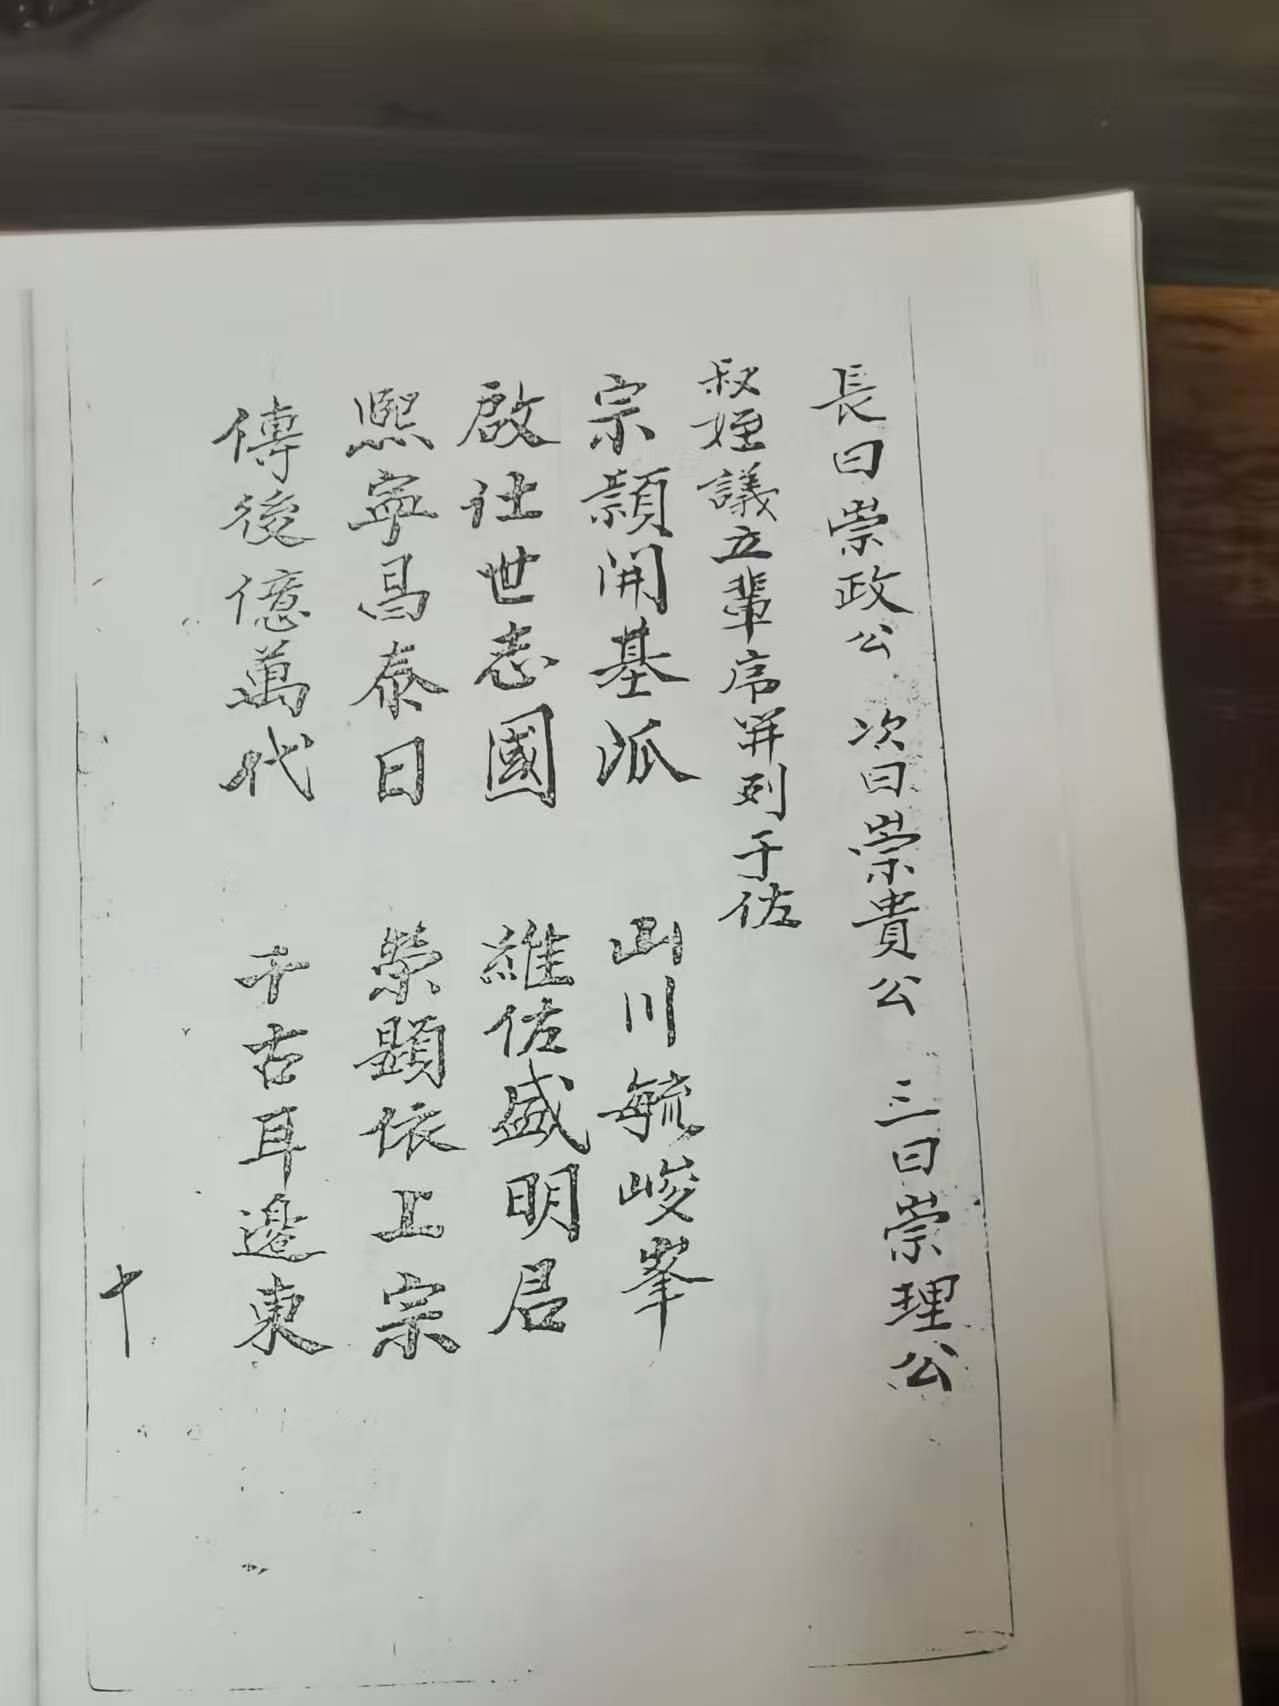 長曰崇政公 次曰崇貴公 三曰崇理公
叔姪議立輩序并列于佐
宗顯開基派 山川毓峻峯
啟仕世志國 維佐盛明启
熙寧昌泰日 榮顕依工宗
傳後億萬代 千古耳邊東
十